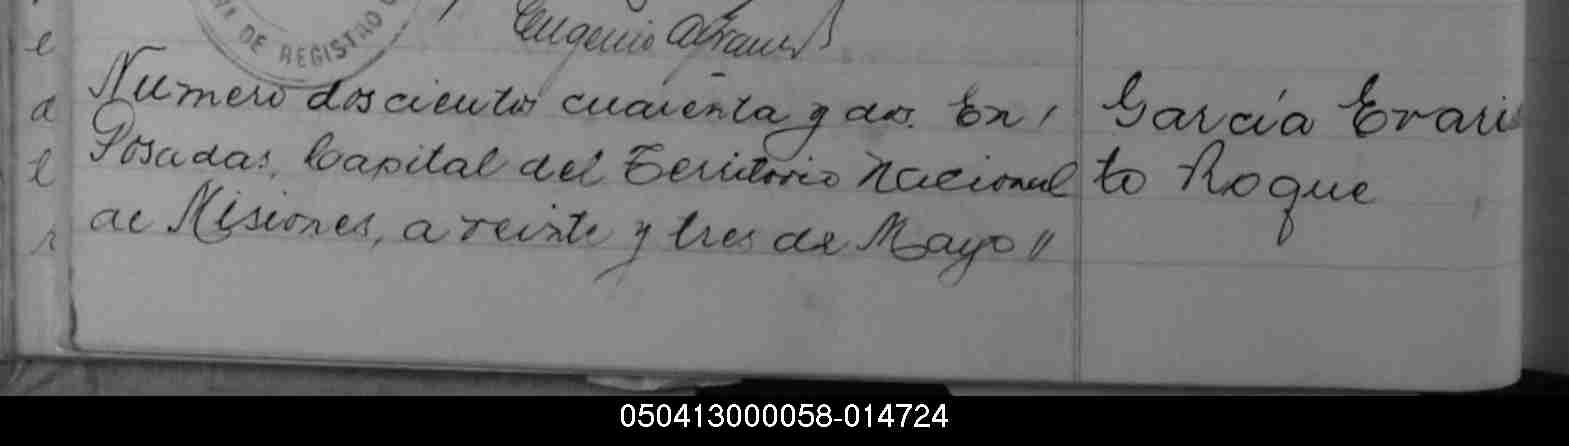 DE REGISTRO
Eugenio
Numero doscientos cuarenta y dos. En,
Posadas, Capital del Territorio Nacional
de Misiones, a veinte y tres de Mayo //
García Evaris
to Roque
e
a
l
r
050413000058-014724